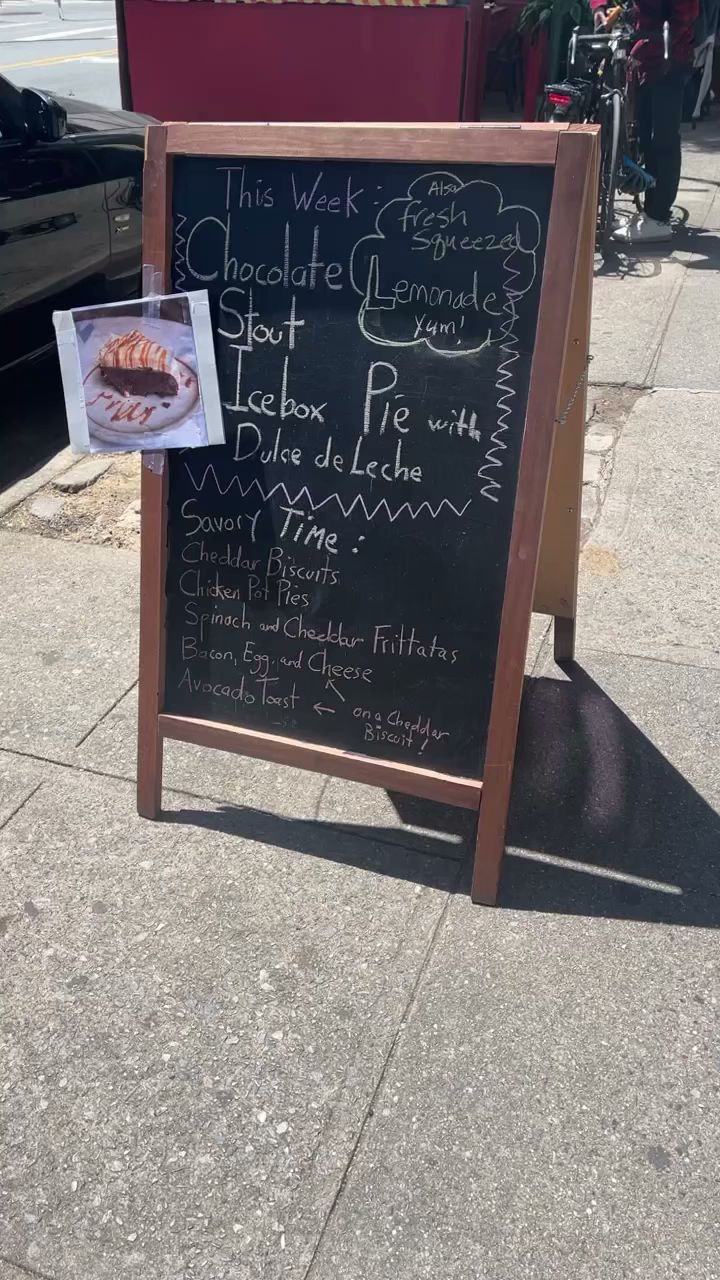 This Week:
Chocolate
Stout
Icebox Pie with
Dulce de Leche
Also
fresh
Squeezed
Lemonade
Yum!
Savory Time:
Cheddar Biscuits
Chicken Pot Pies
Spinach and Cheddar Frittatas
Bacon, Egg, and Cheese
Avocado Toast ← on a Cheddar
Biscuit!